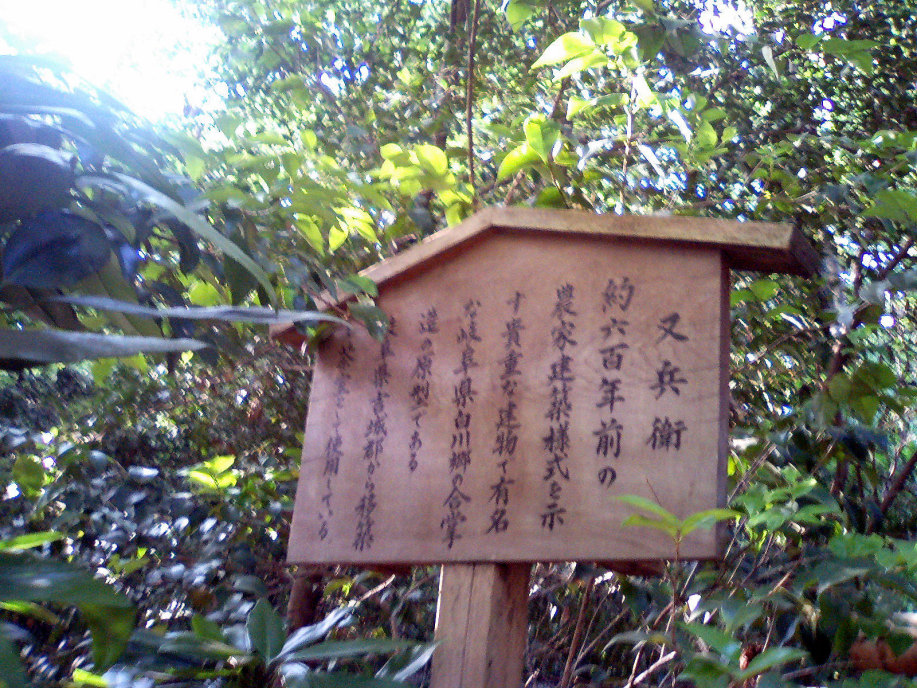 又兵衛
約六百年前の
農家建築様式を示
す貴重な建物で有名
な岐阜県白川郷の合掌
造の原型である
県宮城郡から移築
して使用している